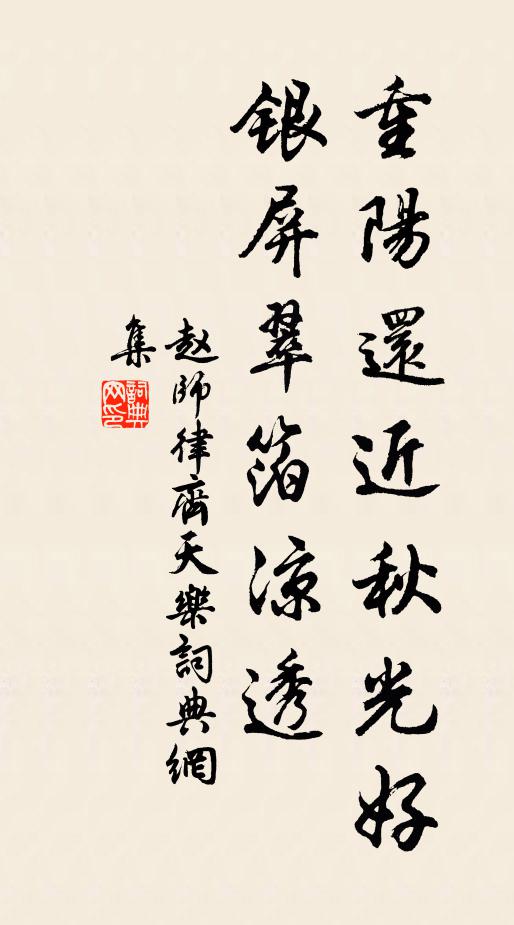 重陽還近秋光好
銀屏翠箔涼透
赵師律齊天樂詞典網
集
詞典网印